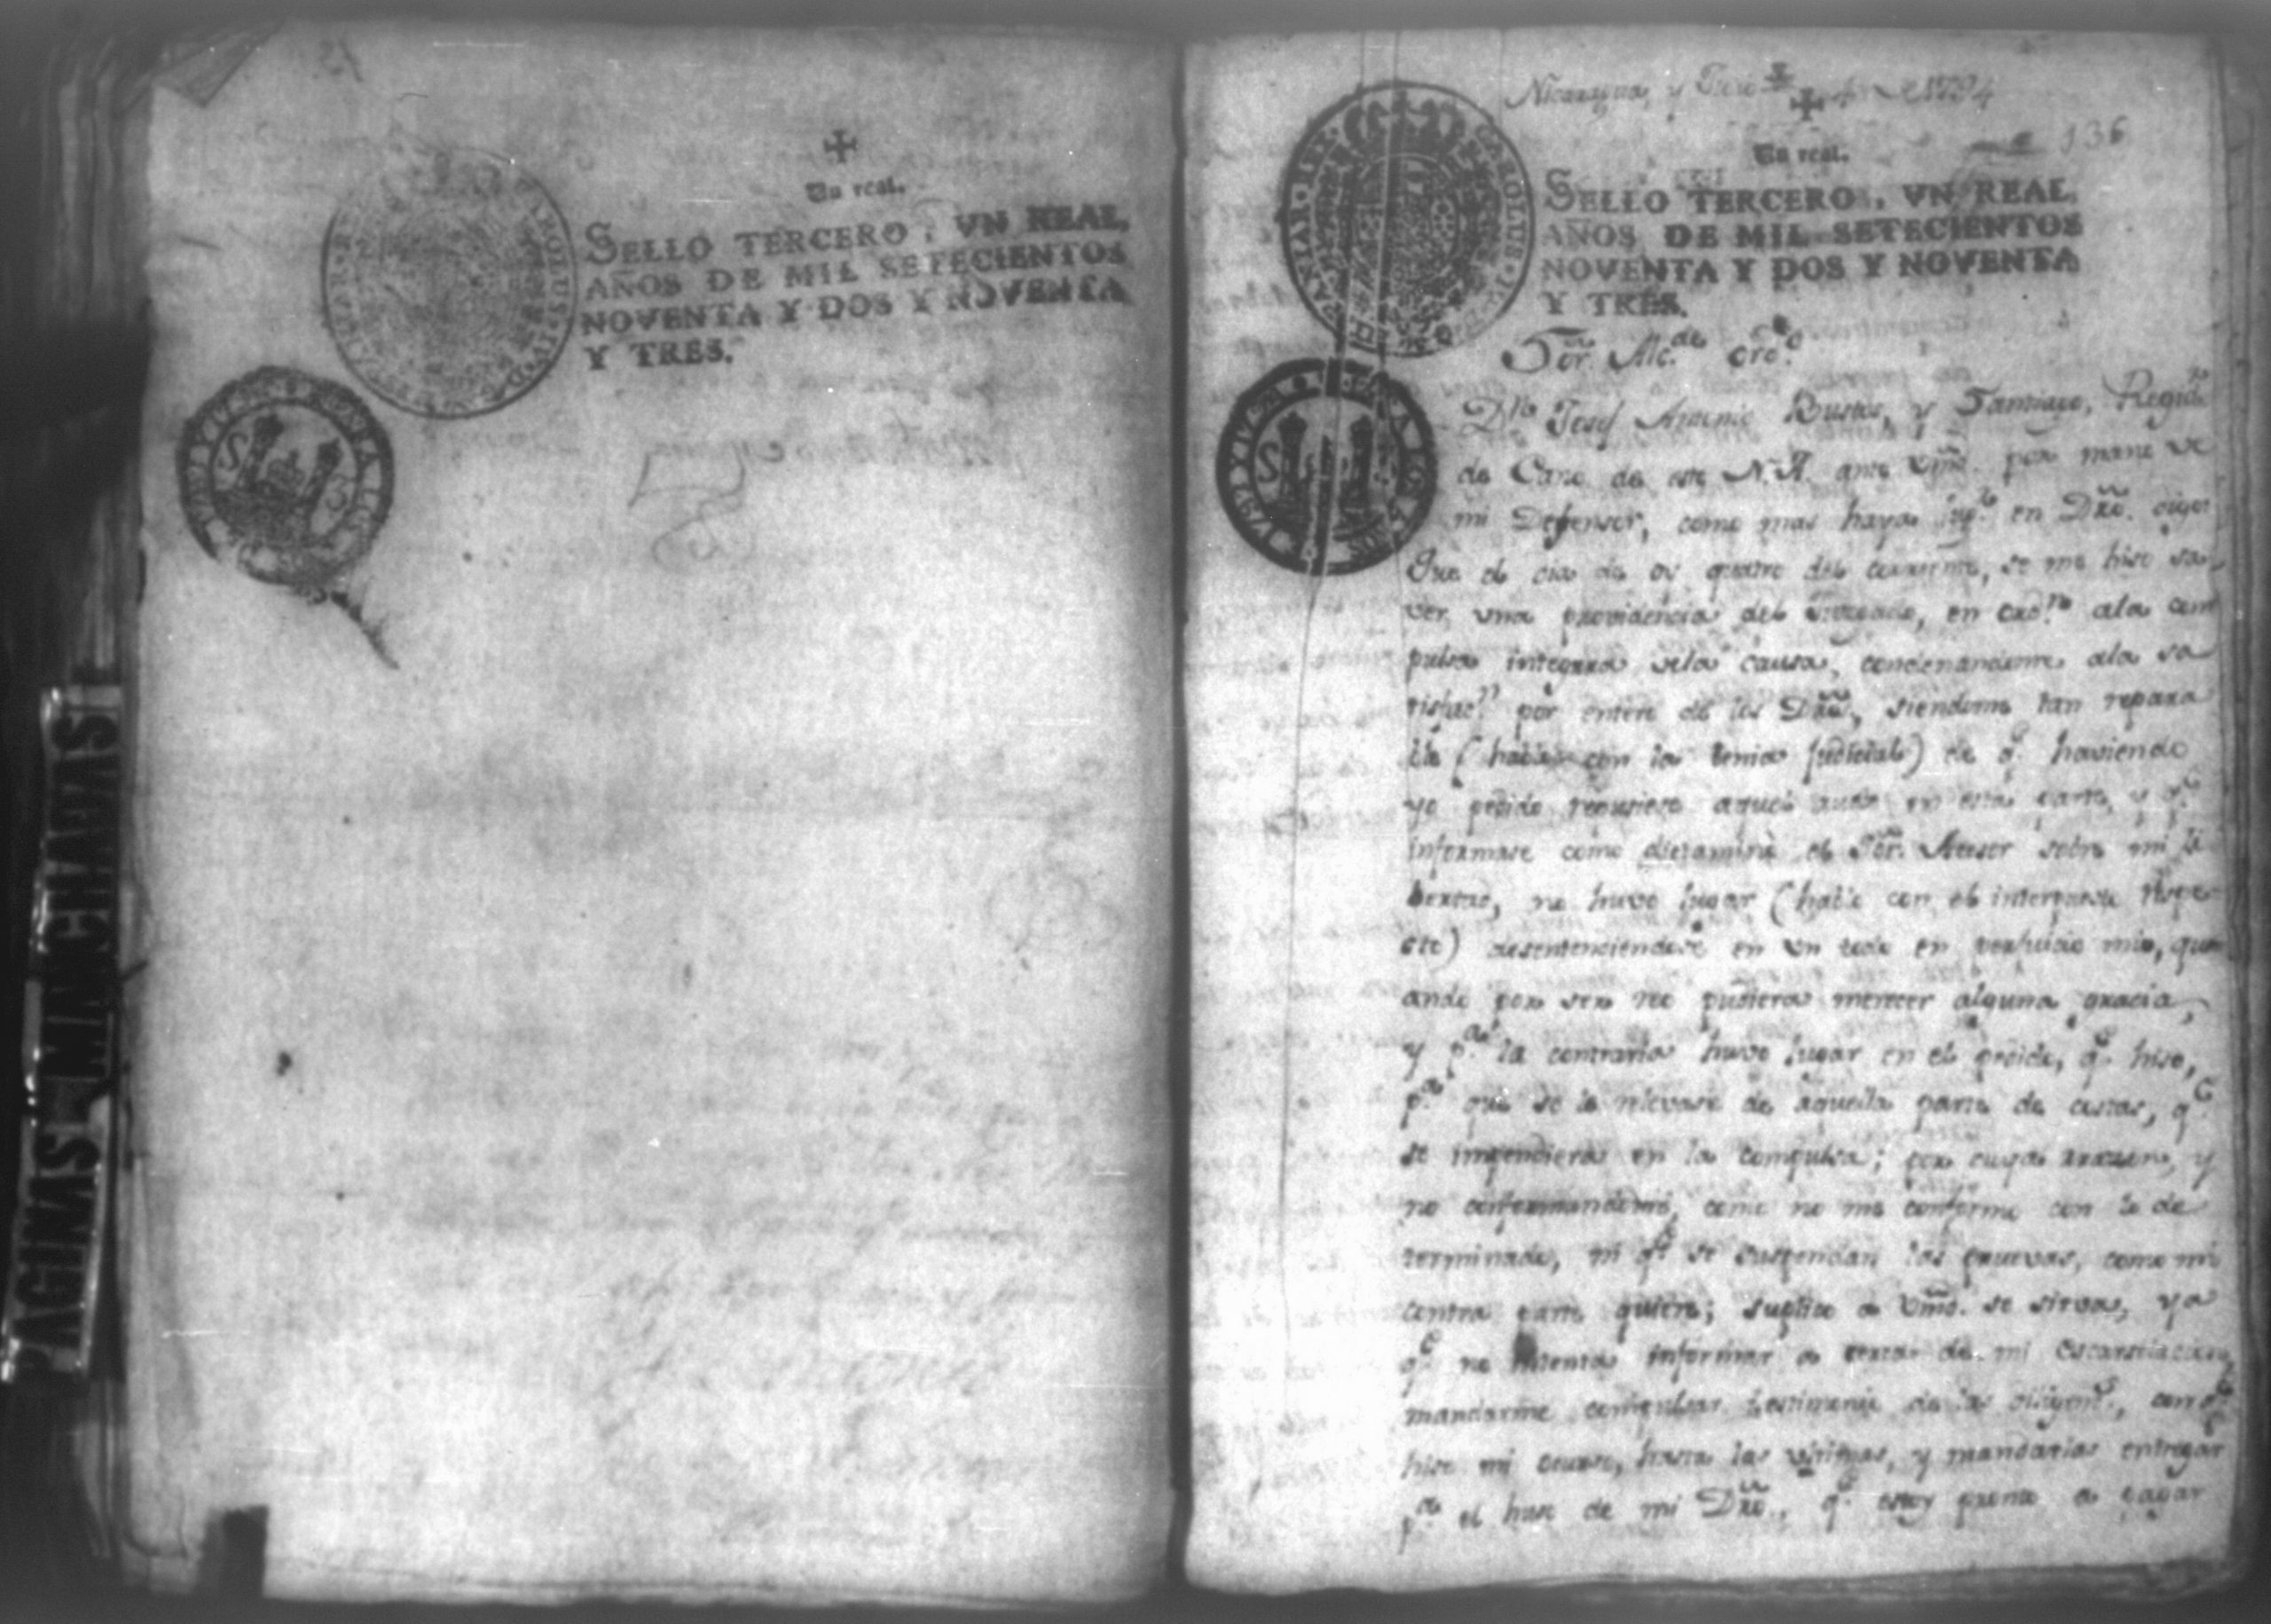 Un real.
SELLO TERCERO, VN REAL,
AÑOS DE MIL SETECIENTOS
NOVENTA Y DOS Y NOVENTA
Y TRES.
PAGINAS MANCHADAS
Nicaragua, y 1794
136
Un real.
SELLO TERCERO, VN REAL,
AÑOS DE MIL SETECIENTOS
NOVENTA Y DOS Y NOVENTA
Y TRES.
CAROLUS
Sōr. Alc.de ordo.
Dn. Josef Antonio Bustos, y Santiago, Regidr.
de Cano de este N.A. ante Vmd. por mano de
mi Defensor, como mas haya lugr. en Dro. digo:
Que el dia de oy quatro del corriente, se me hiso sa-
ver una providencia del Juzgado, en ala com
pulsa integra dela causa, condenandome ala sa
tisfacn. por entero de los Dros., siendome tan repara
ble (hablo con la venia judicial) de qe. haviendo
yo pedido repusiese aquel auto en esta parte, y qe.
informase como dictaminó el Sōr. Asesor sobre mi li
bertad, no huvo lugar (hablo con el interpuesto respe-
cto) desentendiendose en un todo en perjuicio mio, qu
ando por ser reo pudiera merecer alguna gracia,
y pa. la contraria huvo lugar en el pedido, qe. hiso,
pa. que se le relevase de aquella parte de costas, qe.
se impendiera en la compulsa; por cuya razon, y
no conformandome, como no me conformo con lo de
terminado, ni qe. se suspendan las pruevas, como mi
contra parte quiere; suplico a Vmd. se sirva, ya
qe. no intenta informar a cerca de mi escarselacion,
mandarme compulsar testimonio de las diligens., con qe.
hise mi ocurso, hasta las ultimas, y mandarlas entregar
pa. el huso de mi Dro., qe. estoy pronto a pagar